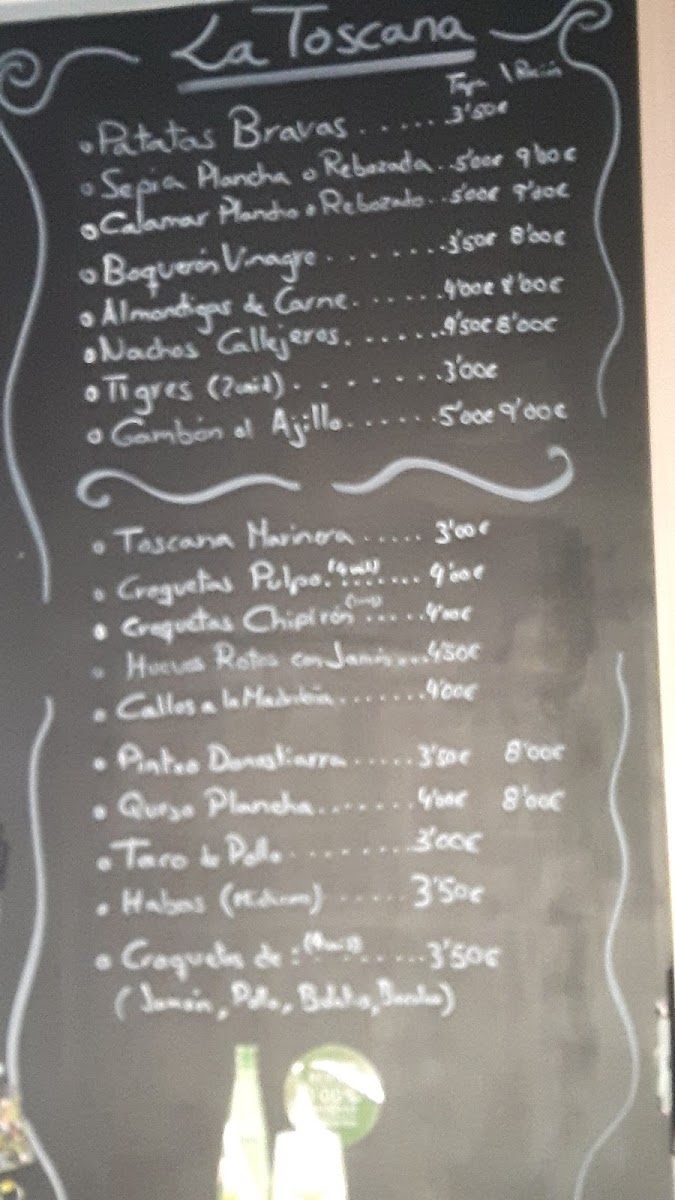 La Toscana
Tapa \ Ración
Patatas Bravas ...... 3'50€
Sepia Plancha o Rebozada .. 5'00€ 9'00€
Calamar Plancha o Rebozado .. 5'00€ 9'00€
Boquerón Vinagre ........ 3'50€ 8'00€
Almondigas de Carne ...... 4'00€ 8'00€
Nachos Callejeros ...... 4'50€ 8'00€
Tigres (2 unid) ........ 3'00€
Gambón al Ajillo ...... 5'00€ 9'00€
Toscana Marinera ..... 3'00€
Croquetas Pulpo ........ 4'00€
Croquetas Chipirón ..... 4'00€
Huevos Rotos con Jamón ... 4'50€
Callos a la Madrileña ....... 4'00€
Pintxo Donostiarra ..... 3'50€ 8'00€
Queso Plancha ....... 4'00€ 8'00€
Taco de Pollo ........ 3'00€
Habas ..... 3'50€
Croqueta de: ...... 3'50€
(Jamón, Pollo,